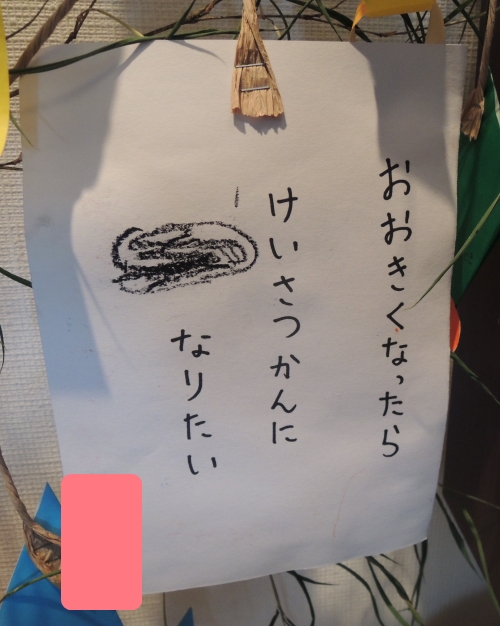 おおきくなったら
けいさつかんに
なりたい